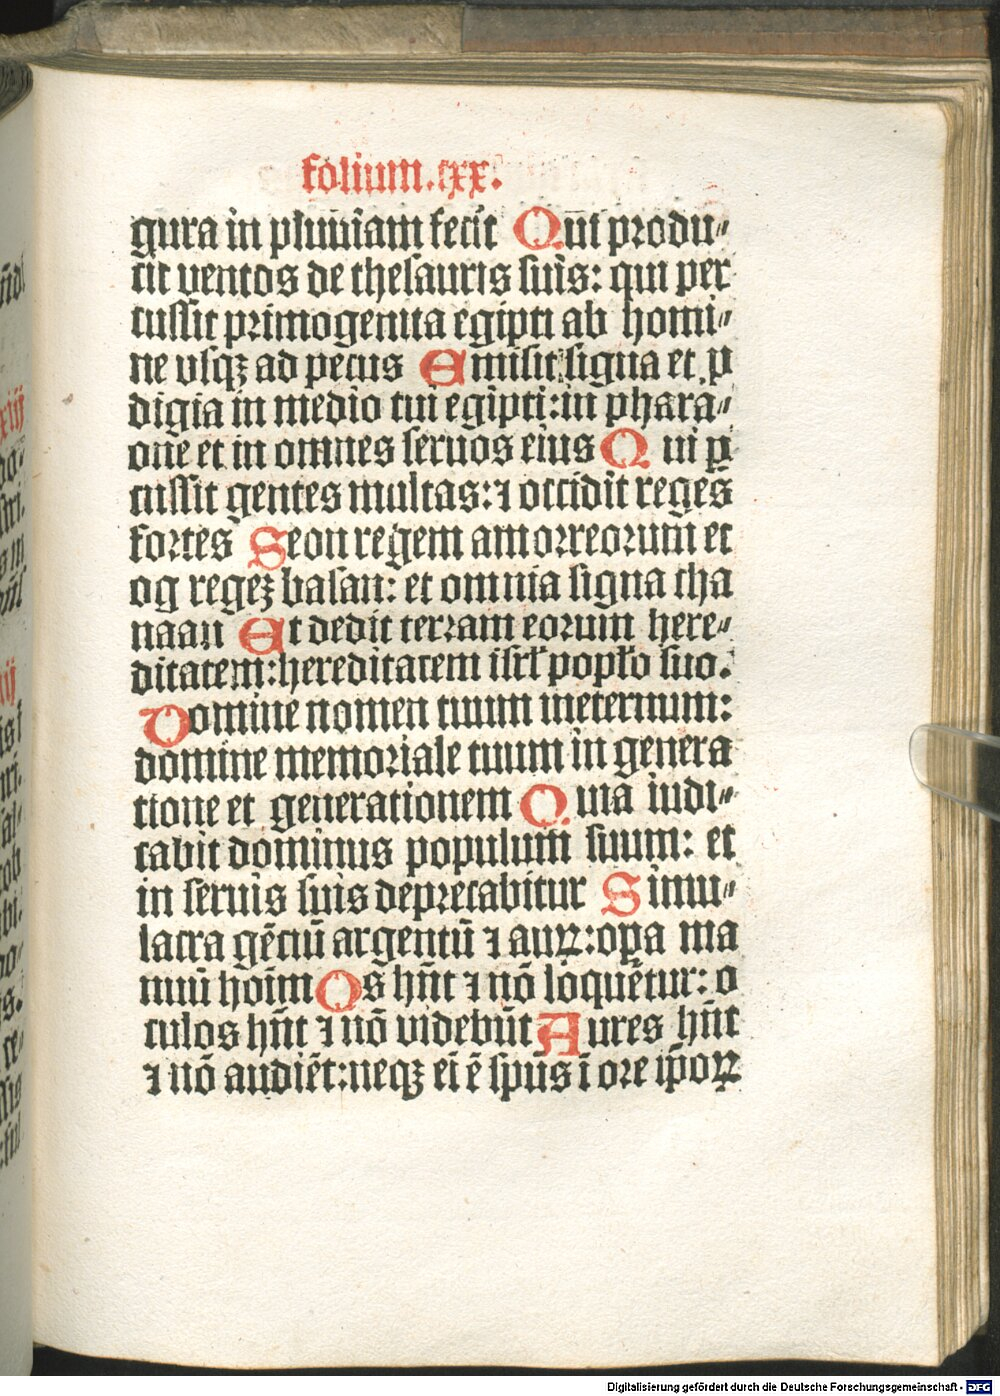 folium.cxx.
gura in pluuiam fecit Qui produ⸗
cit uentos de thesauris suis: qui per
cussit primogenita egipti ab homi⸗
ne vsqꝫ ad pecus Emisit signa et ꝓ
digia in medio tui egipti:in phara⸗
one et in omnes seruos eius Qui ꝑ
cussit gentes multas:⁊ occidit reges
fortes Seon regem amorreorum et
og regeꝫ basan: et omnia signa cha
naan Et dedit terram eorum here⸗
ditatem:hereditatem isrł popło suo.
Domine nomen tuum ineternum:
domine memoriale tuum in genera
tione et generationem Quia iudi⸗
cabit dominus populum suum: et
in seruis suis deprecabitur Simu⸗
lacra gētiū argentū ⁊ auꝝ:oꝑa ma
nuū hoīm Os hn̄t ⁊ nō loquētur: o
culos hn̄t ⁊ nō videbūt Aures hn̄t
⁊ nō audiēt:neqꝫ eī ē sp̄us ī ore ip̄oꝝ
Digitalisierung gefördert durch die Deutsche Forschungsgemeinschaft - DFG